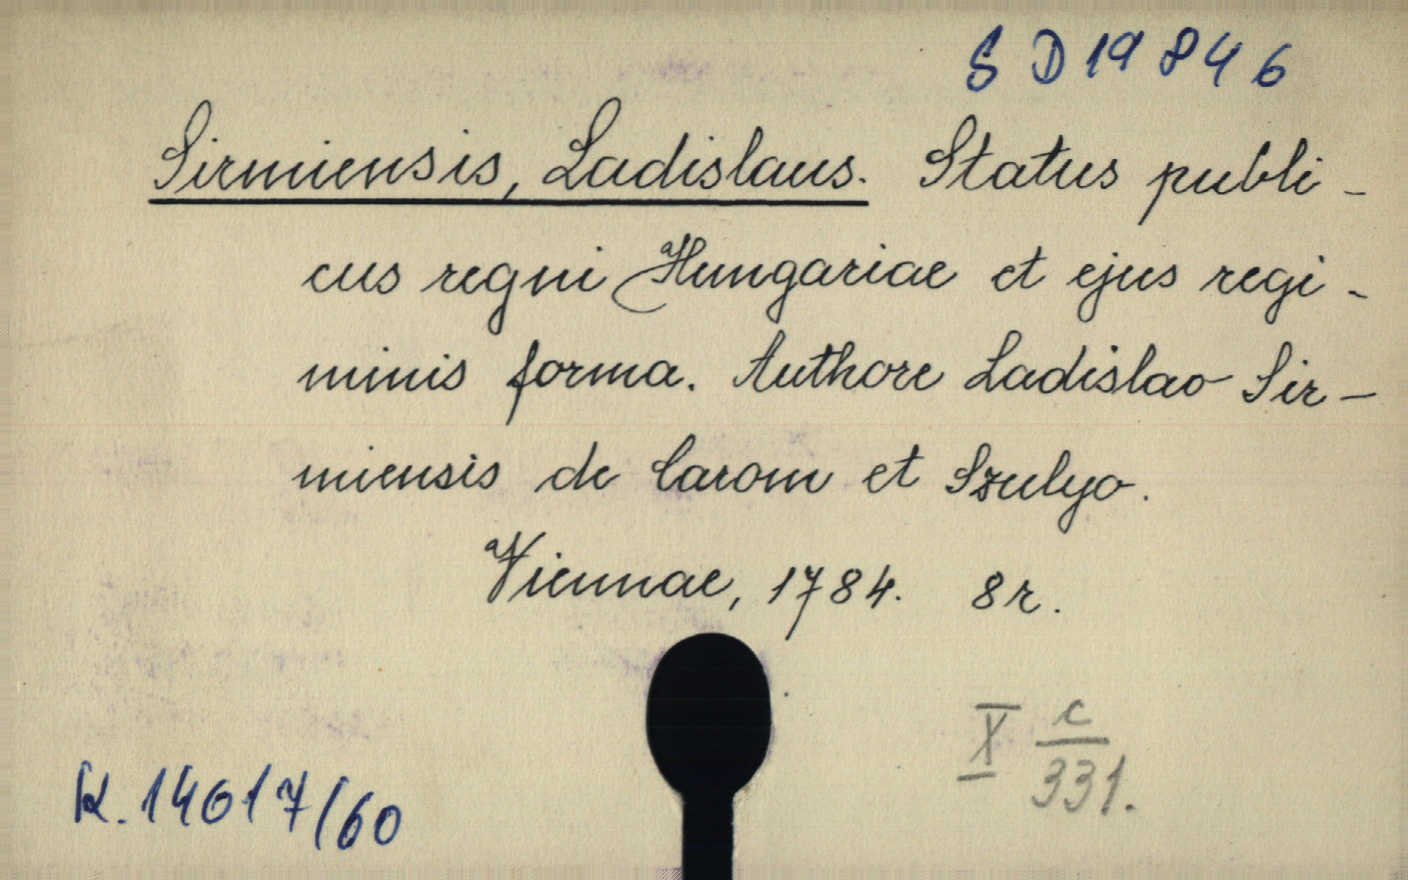 S D 19 846
Sirmiensis, Ladislaus. Status publi-
cus regni Hungariae et ejus regi-
minis forma. Authore Ladislao Sir-
miensis de Carom et Szulyo.
Viennae, 1784. 8r.
X c
331.
K. 14617/60